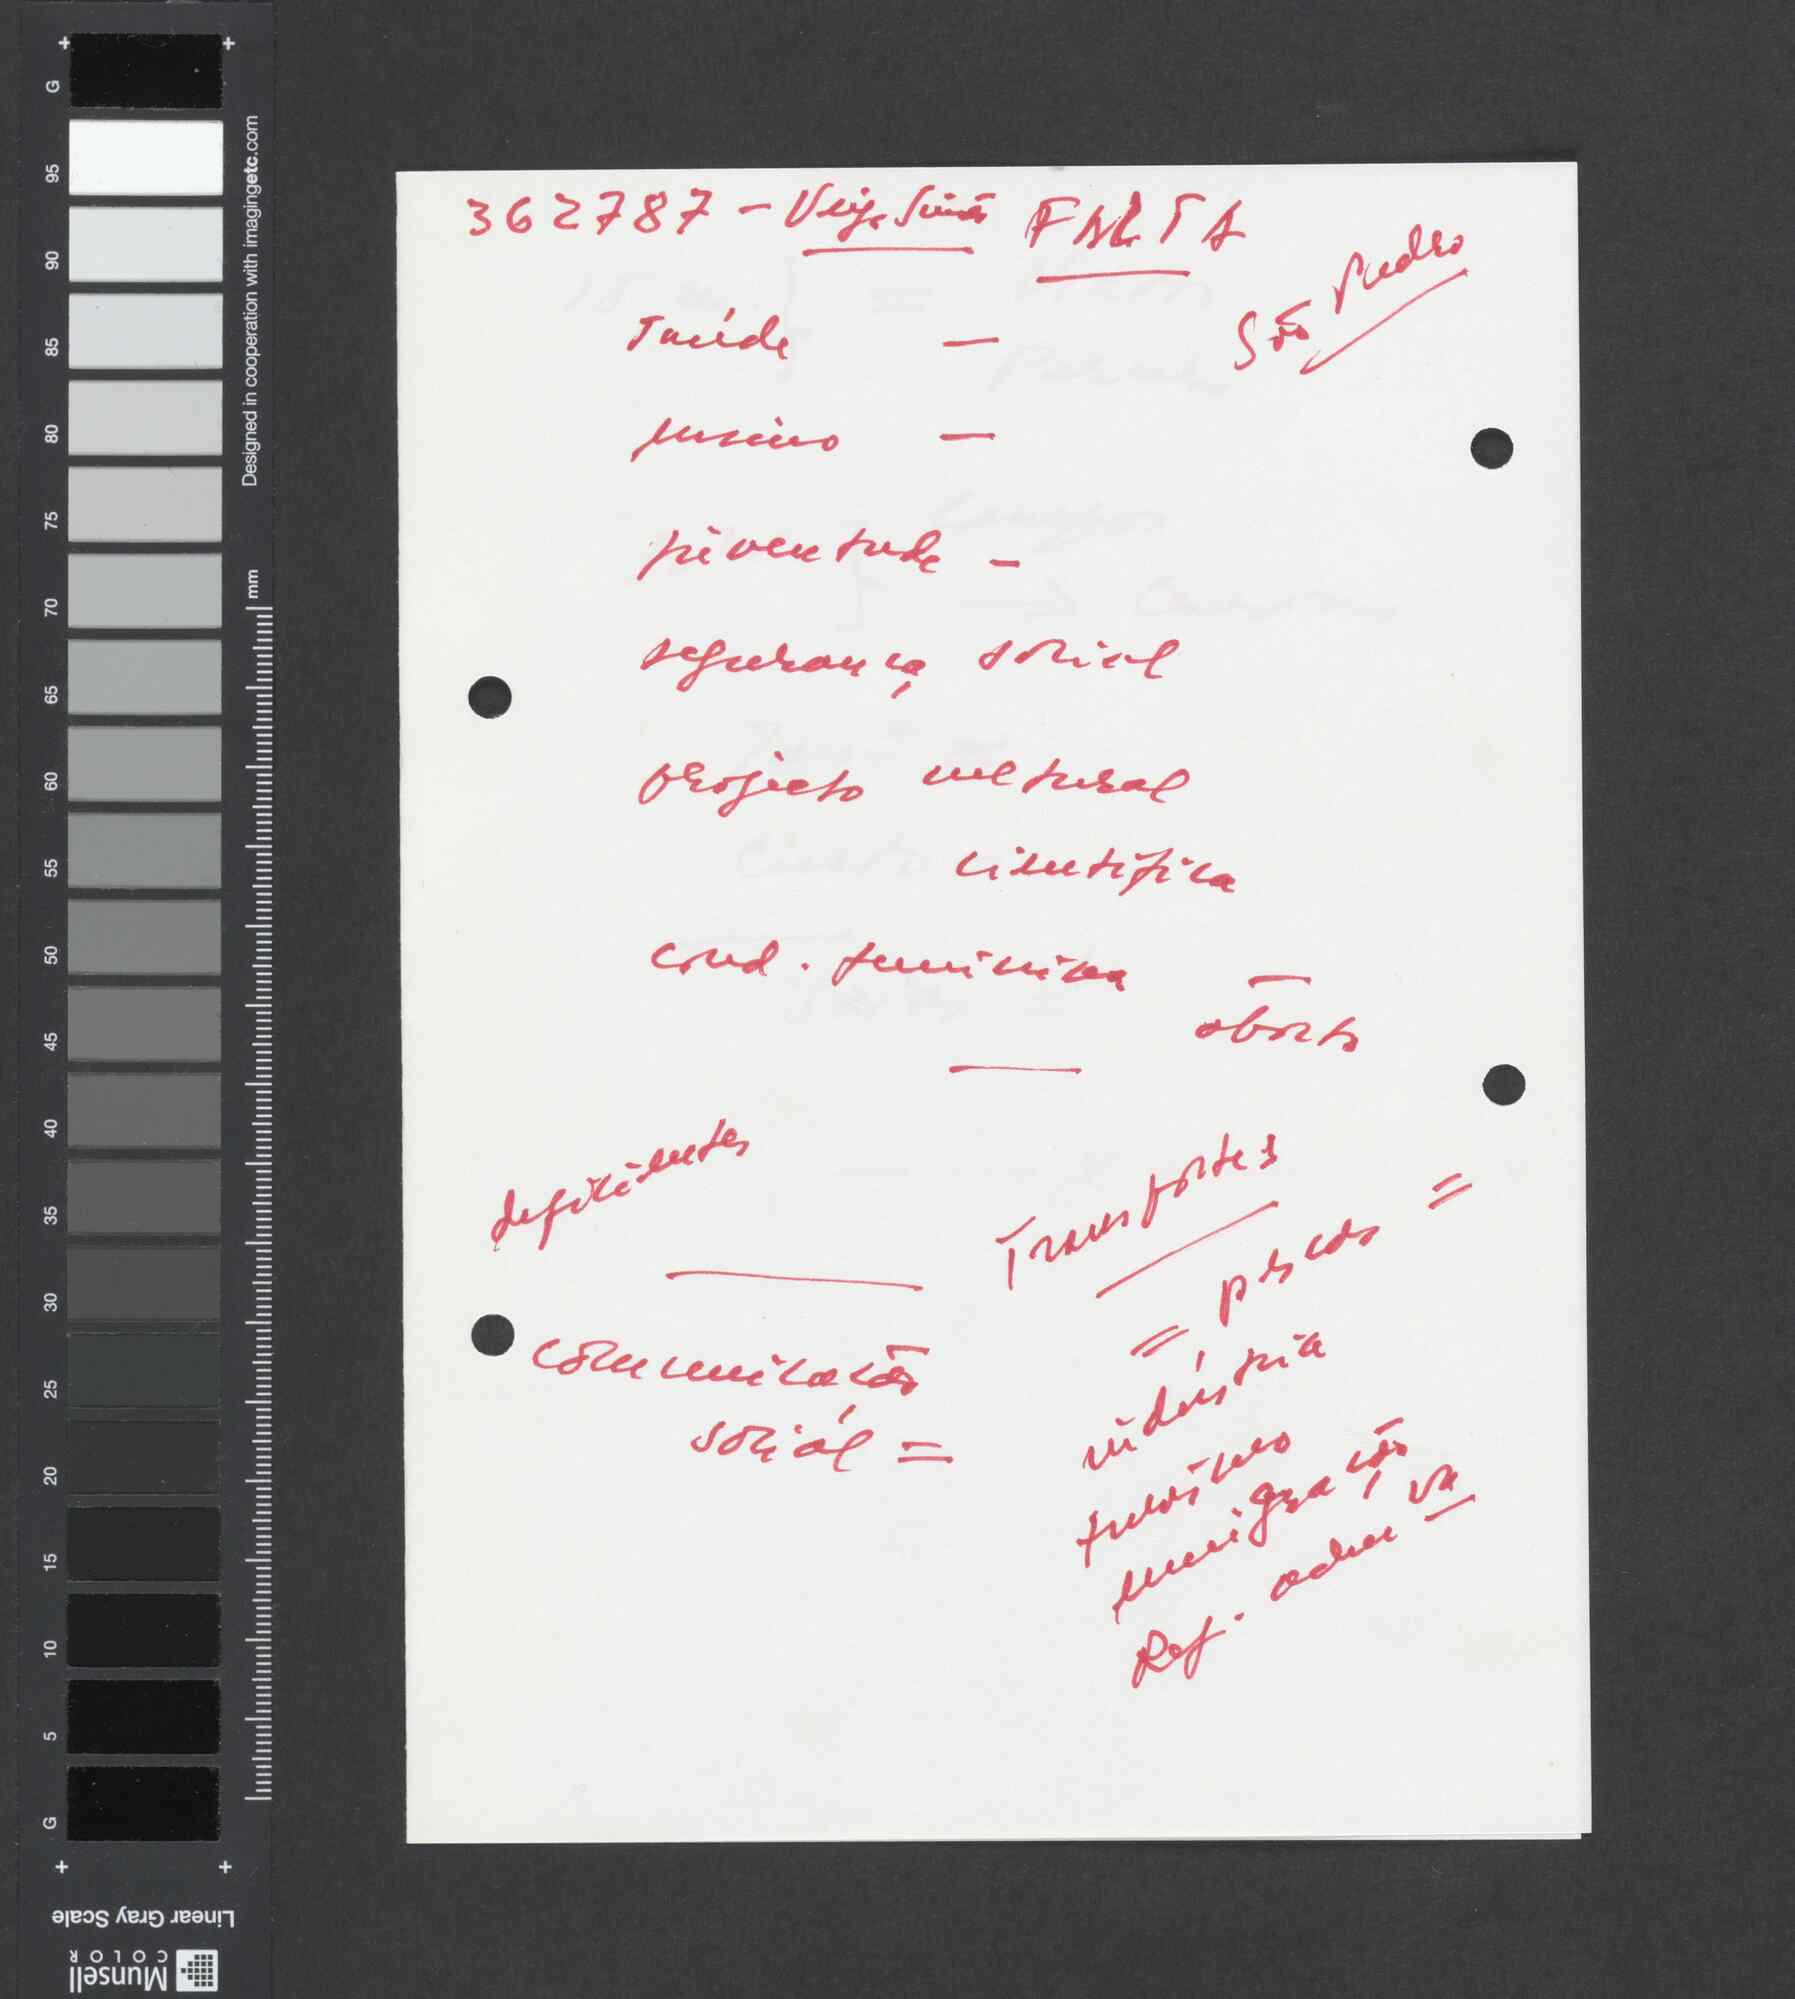 362787 - FALTA
São Pedro
saúde —
ensino —
juventude —
segurança social
projecto cultural
cientifica
cond. feminina —
aborto
deficientes
Transportes
= pescas =
comunicacão
social =
indústria
turismo
emigração
Ref. adm va
G
95
90
85
80
75
70
65
60
55
50
45
40
35
30
25
20
15
10
5
G
Designed in cooperation with imagingetc.com
mm
Linear Gray Scale
Munsell
COLOR